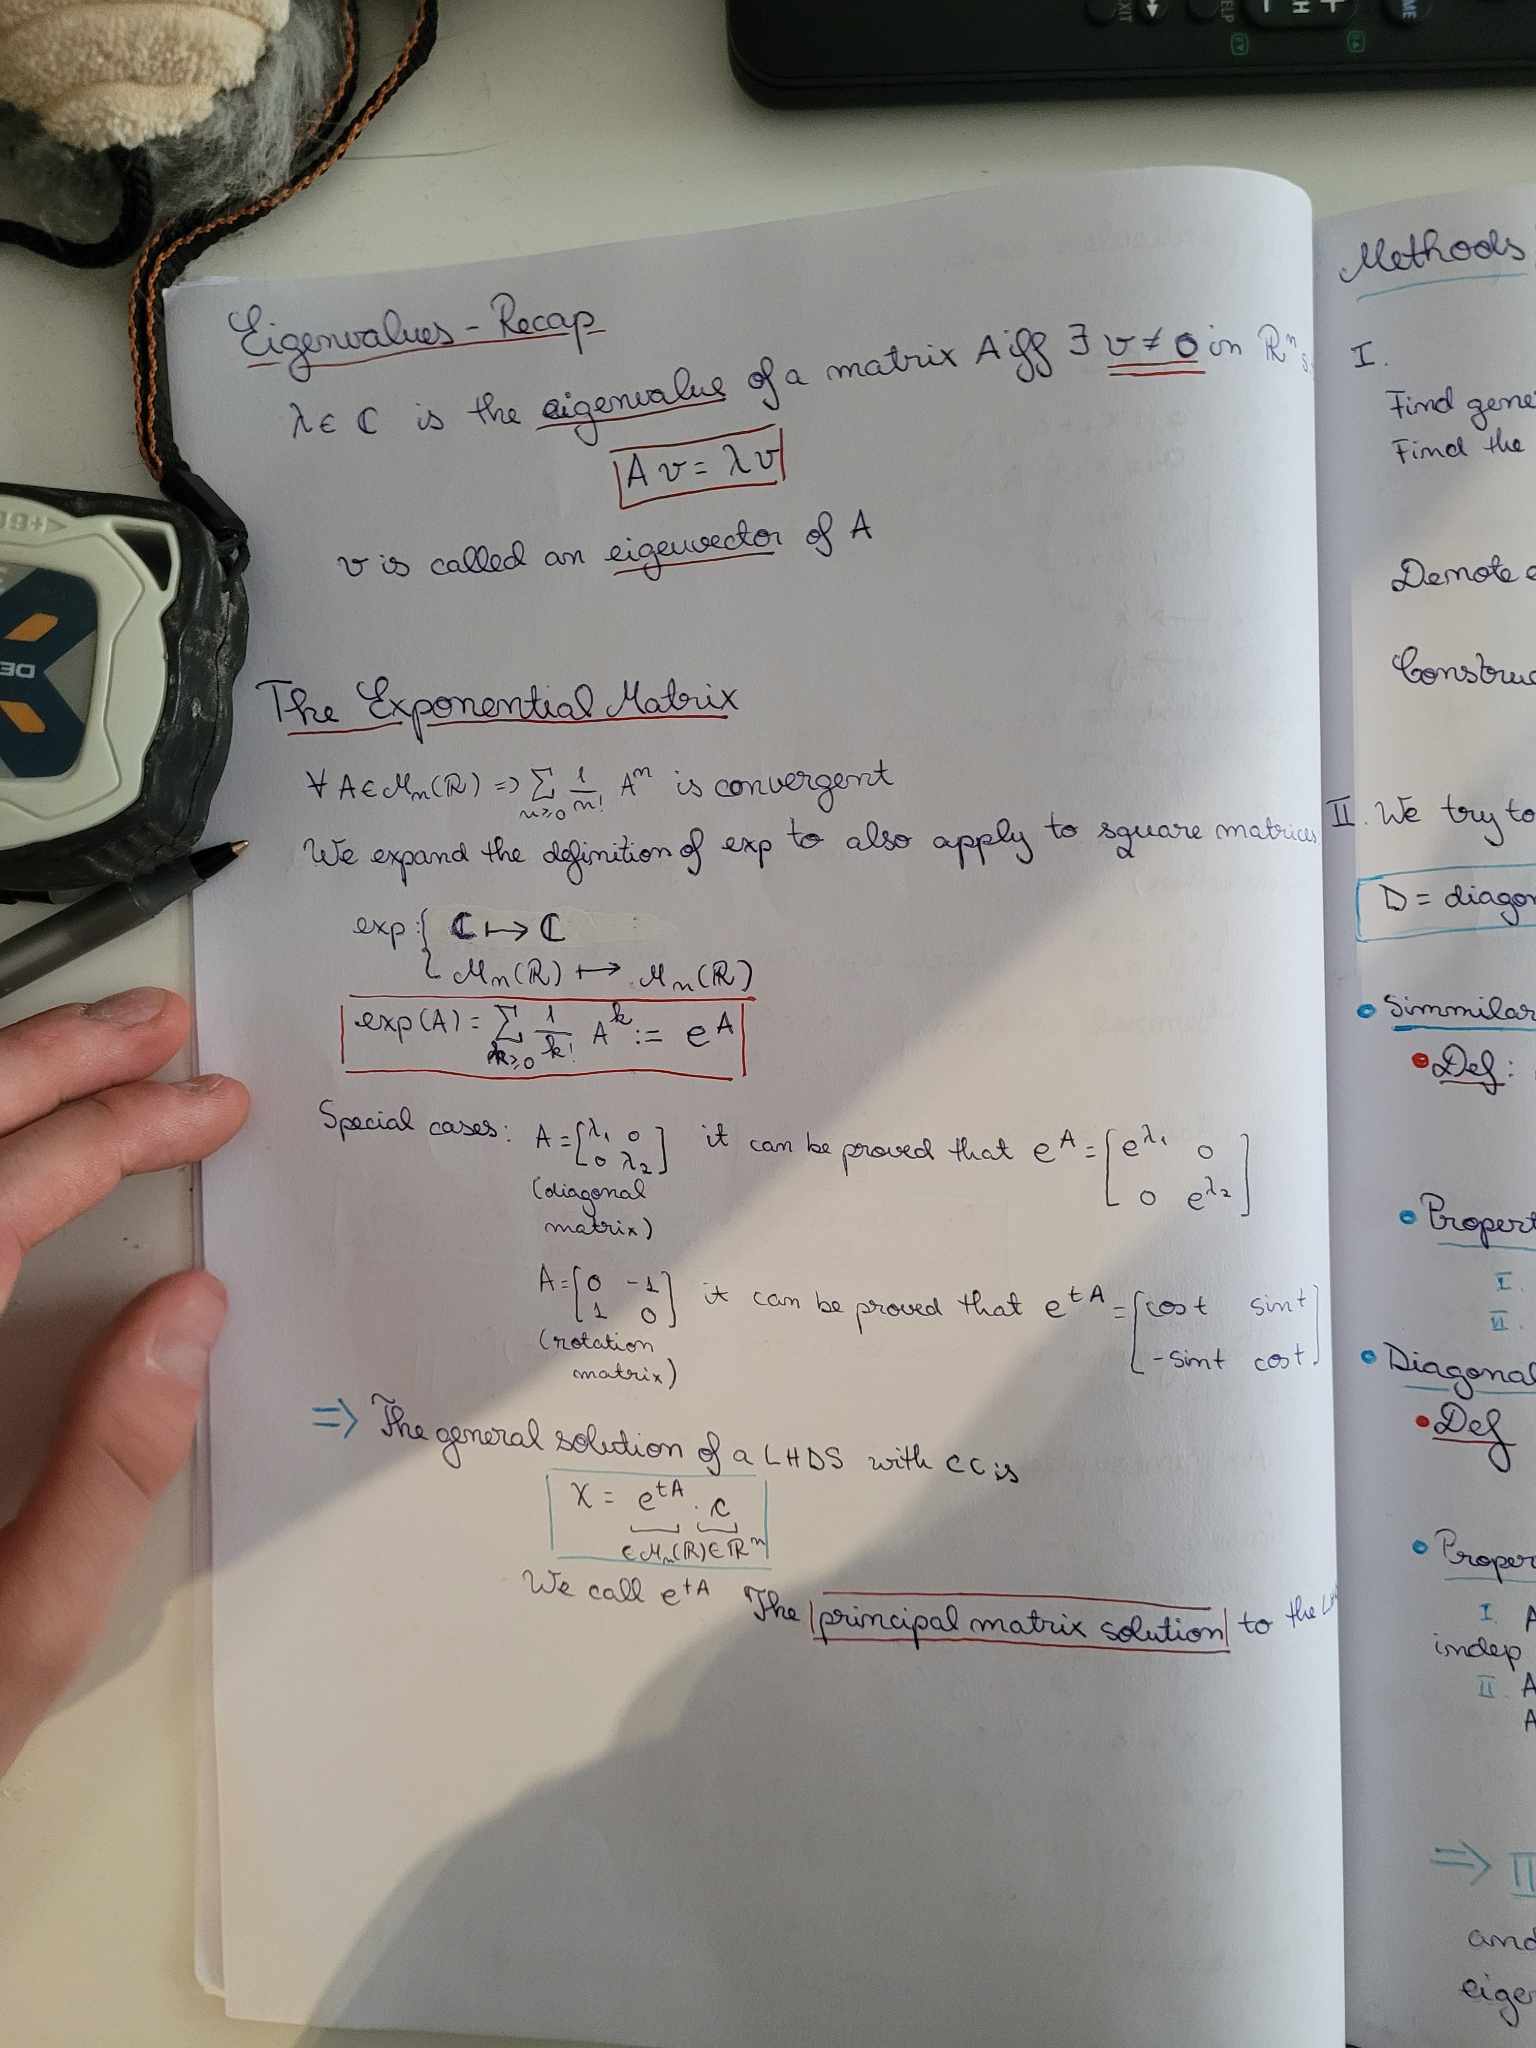 Eigenvalues - Recap
λ ∈ ℂ is the eigenvalue of a matrix A iff ∃ v ≠ 0 in ℝⁿ s.
A v = λ v
v is called an eigenvector of A
The Exponential Matrix
∀ A ∈ Mn(ℝ) => ∑ n≥0 1/n! Aⁿ is convergent
We expand the definition of exp to also apply to square matrices
exp: { ℂ ↦ ℂ
Mn(ℝ) ↦ Mn(ℝ)
exp(A) = ∑ k≥0 1/k! A^k := e^A
Special cases: A = [λ1 0; 0 λ2] it can be proved that e^A = [e^λ1 0; 0 e^λ2]
(diagonal
matrix)
A = [0 -1; 1 0] it can be proved that e^tA = [cos t sin t; -sin t cos t]
(rotation
matrix)
=> The general solution of a LHDS with CC is
X = e^tA · c
∈ Mn(ℝ) ∈ ℝⁿ
We call e^tA The principal matrix solution to the
Methods
I.
Find gene
Find the
Denote e
Construc
II. We try to
D = diagon
• Simmilar
• Def:
• Propert
I.
II.
• Diagonal
• Def
• Proper
I. A
indep
II. A
A
=> II
and
eigen
EXIT
HELP
H
DE